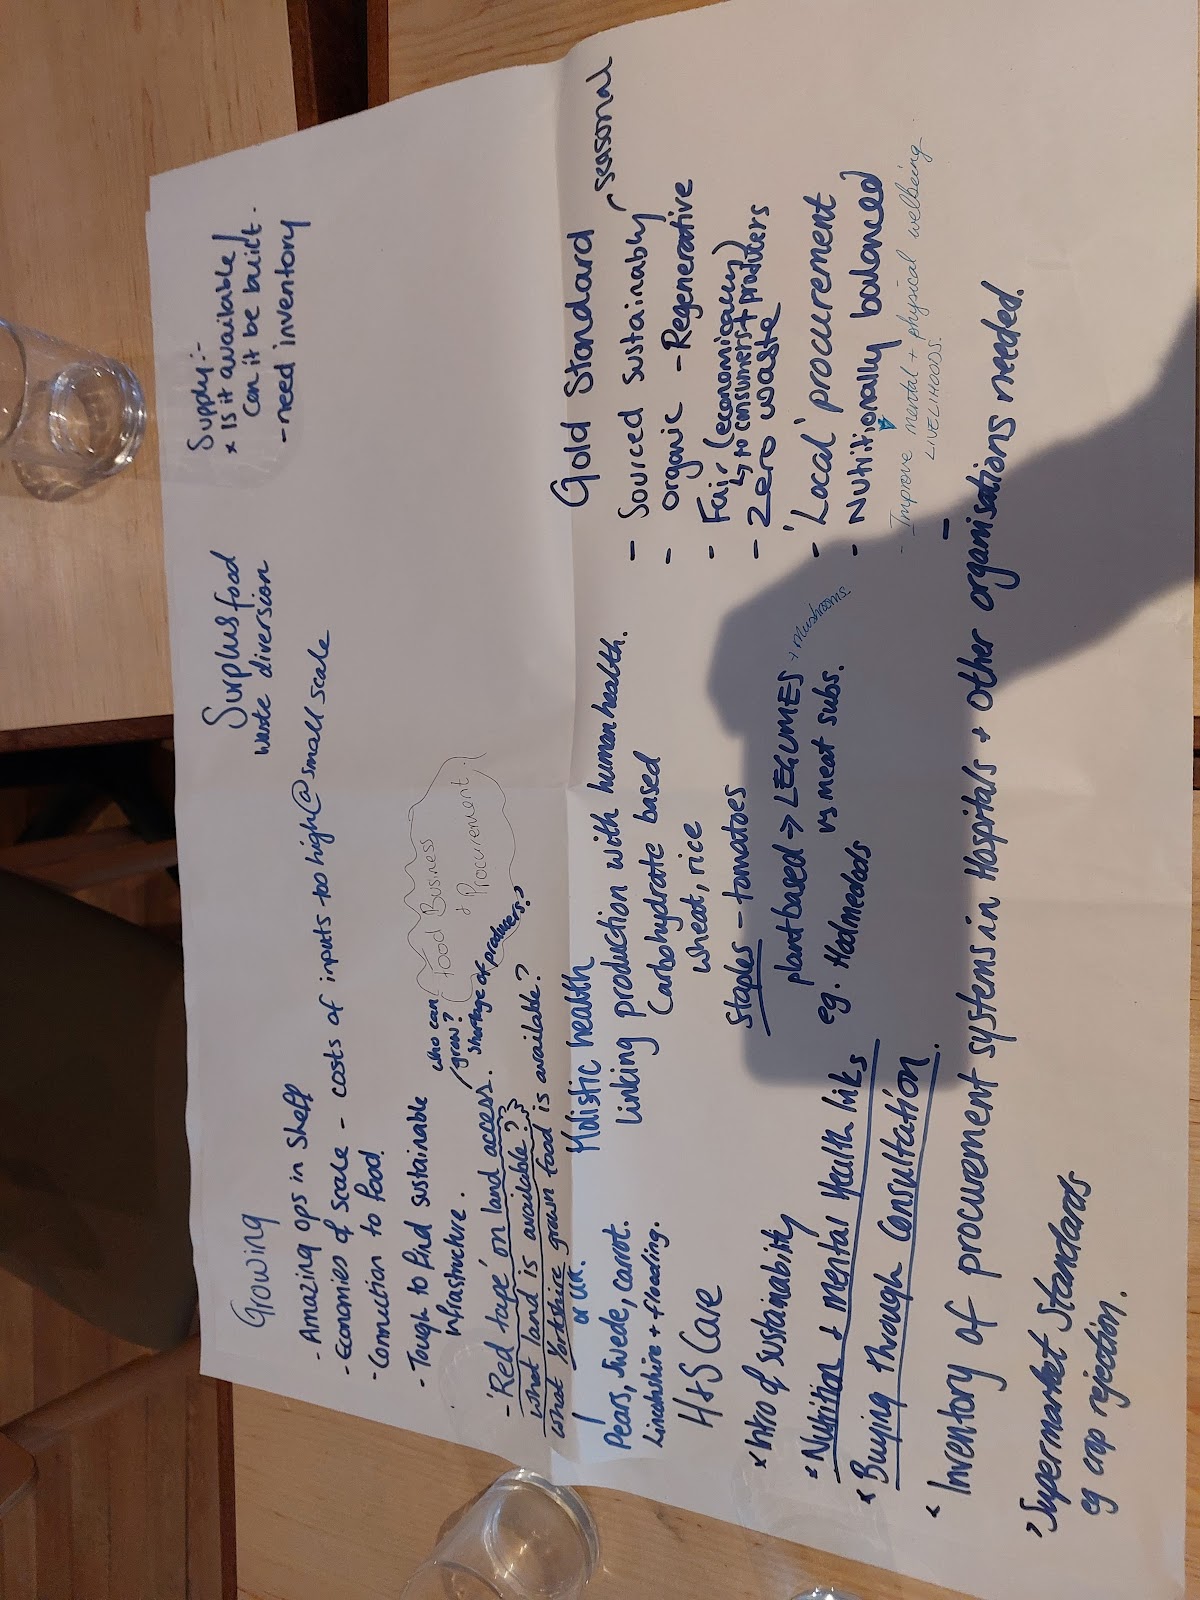 Growing
- Amazing ops in Sheff
- Economies of scale - costs of inputs too high @ small scale
- Connection to food.
- Tough to find sustainable
infrastructure.
- 'Red tape' on land access.
who can
grow?
shortage of producers?
what land is available??
what Yorkshire grown food is available?
or UK.
Pears, Swede, Carrot.
Lincolnshire + flooding.
Food Business
+ Procurement.
Surplus food
waste diversion
Supply:-
x Is it available
Can it be built.
- need inventory
Holistic health
Linking production with human health.
Carbohydrate based
wheat, rice
Staples - tomatoes
plant based → LEGUMES + mushrooms.
eg. Hodmedods vs meat subs.
Gold Standard
- Sourced sustainably - seasonal
- organic - Regenerative
- Fair (economically)
↳ to consumers + producers
- Zero waste
- 'Local' procurement
- Nutritionally balanced
- Improve mental + physical wellbeing
LIVELIHOODS.
-
H+S Care
x Intro of sustainability
x Nutrition + mental Health links
x Buying through Consultation.
x Inventory of procurement systems in Hospitals + other organisations needed.
? Supermarket Standards
eg crop rejection.